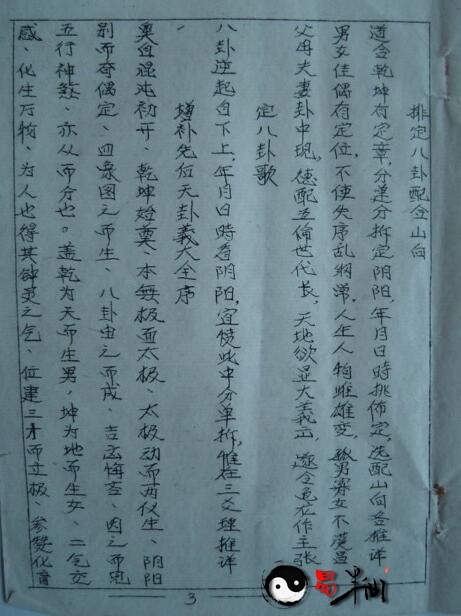 排定八卦配合山向
道合乾坤有定章，分逆分拆定阴阳，年月日時排佈定，选配山向各推详
男女佳偶有定位，不使失序乱纲常，人生人物雌雄变，鳏男寡女不漫
父母夫妻卦中现，德配五倫世代长，天地欲显大義正，逐令意作主张
定八卦歌
八卦逆起自下上，年月日時看阴阳，宜凭此中分单拆，惟在三爻理推详
增补先位天卦義大全序
奥自混沌初开、乾坤始奠、本無极而太极、太极动而两仪生、阴阳
别而奇偶定、四象图之而生、八卦由之而成、吉凶悔吝、因之而見
五行神煞、亦从而分也。盖乾为天而生男，坤为地而生女、二气交
感、化生万物、为人也得其钟灵之气、位建三才而立极、参赞化育
3
易